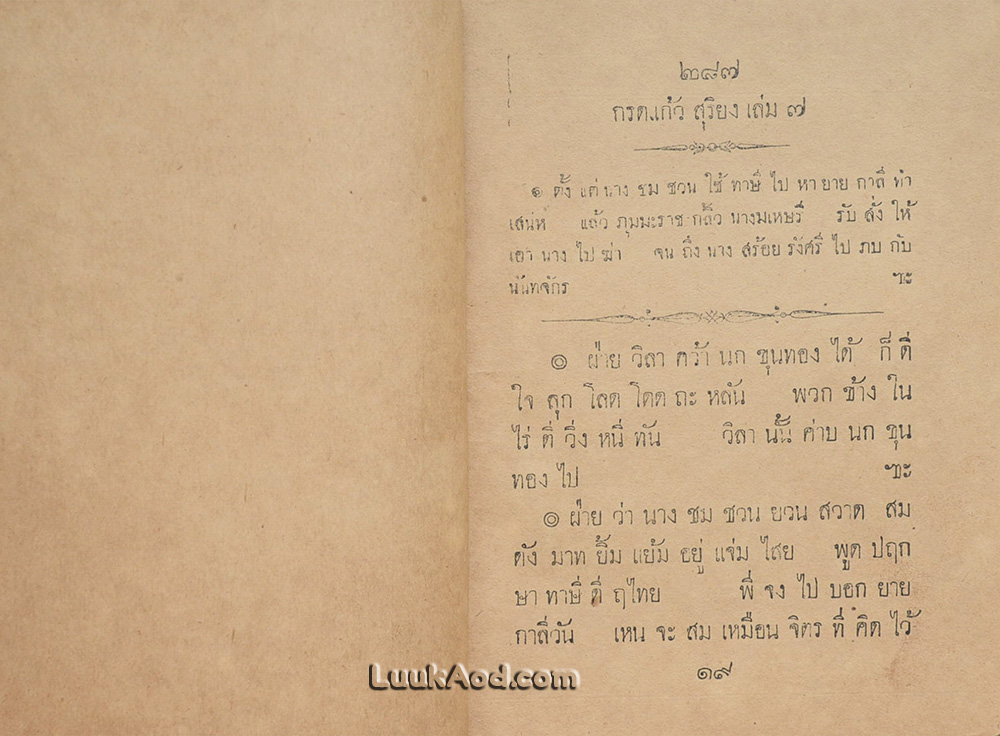 ๒๘๗
กรดแก้ว สุริยง เล่ม ๗
๏ ตั้ง แต่ นาง ชม ชวน ใช้ ทาษี ไป หา ยาย กาลี ทำ
เสน่ห์ แล้ว ภุมมะราช กลิ้ว นางมเหษรี รับ สั่ง ให้
เอา นาง ไป ฆ่า จน ถึง นาง สร้อย รังศรี ไป ภบ กับ
นันทจักร ฯะ
๏ ฝ่าย วิลา คว้า นก ขุนทอง ได้ ก็ ดี
ใจ ลุก โลด โดด ถะ หลัน พวก ช้าง ใน
ไร่ ตี่ วิ่ง หนี ทัน วิลา นั้น ค่าบ นก ขุน
ทอง ไป ฯะ
๏ ฝ่าย ว่า นาง ชม ชวน ยวน สวาด สม
ดัง มาท ยิ้ม แย้ม อยู่ แจ่ม ไสย พูด ปฤก
ษา ทาษี ดี่ ฤไทย พี่ จง ไป บอก ยาย
กาลีวัน เหน จะ สม เหมือน จิตร ที่ คิด ไว้
๑๙
LuukAod.com